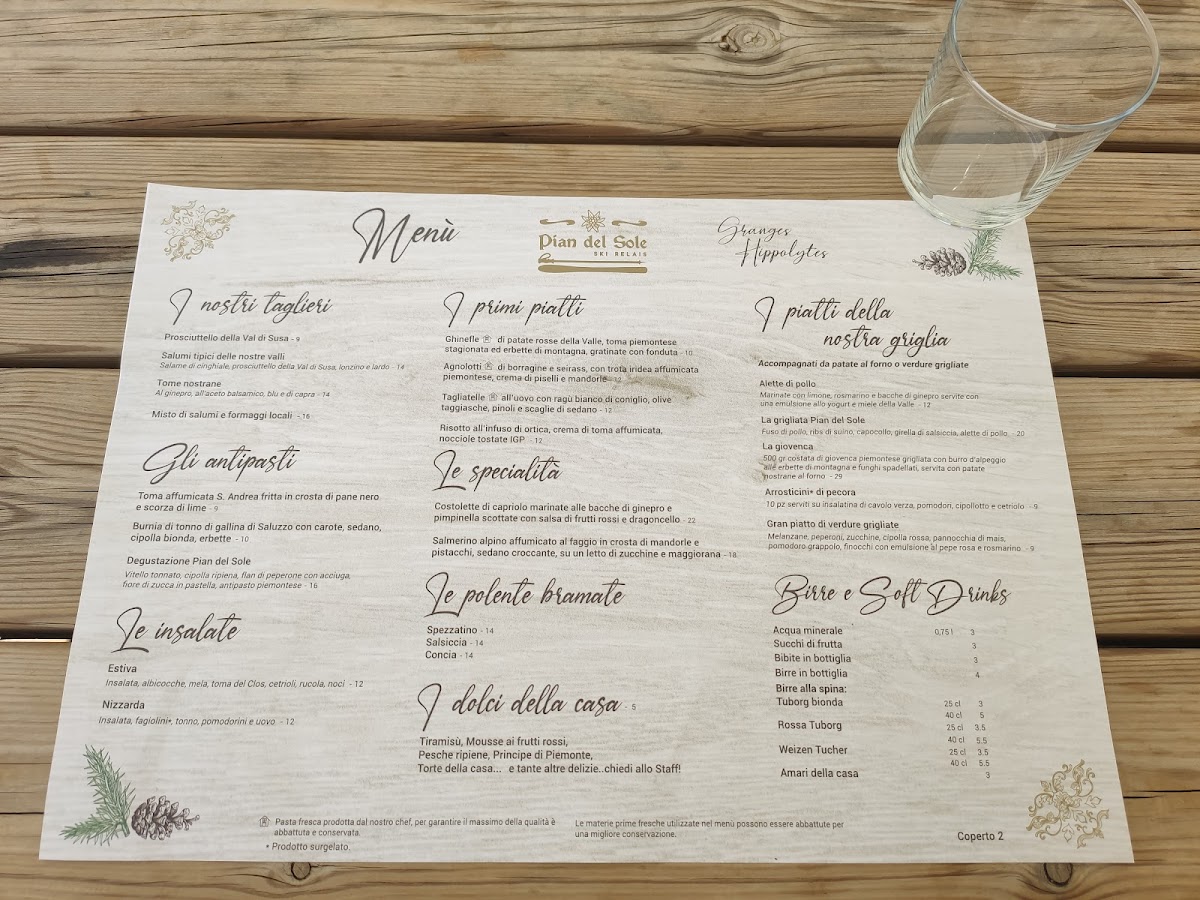 Menù
Pian del Sole
SKI RELAIS
Granges
Hippolytes
I nostri taglieri
Prosciuttello della Val di Susa - 9
Salumi tipici delle nostre valli
Salame di cinghiale, prosciuttello della Val di Susa, lonzino e lardo - 14
Tome nostrane
Al ginepro, all'aceto balsamico, blu e di capra - 14
Misto di salumi e formaggi locali - 16
Gli antipasti
Toma affumicata S. Andrea fritta in crosta di pane nero
e scorza di lime - 9
Burnia di tonno di gallina di Saluzzo con carote, sedano,
cipolla bionda, erbette - 10
Degustazione Pian del Sole
Vitello tonnato, cipolla ripiena, flan di peperone con acciuga,
fiore di zucca in pastella, antipasto piemontese - 16
Le insalate
Estiva
Insalata, albicocche, mela, toma del Clos, cetrioli, rucola, noci - 12
Nizzarda
Insalata, fagiolini*, tonno, pomodorini e uovo - 12
I primi piatti
Ghinefle di patate rosse della Valle, toma piemontese
stagionata ed erbette di montagna, gratinate con fonduta - 10
Agnolotti di borragine e seirass, con trota iridea affumicata
piemontese, crema di piselli e mandorle - 12
Tagliatelle all'uovo con ragù bianco di coniglio, olive
taggiasche, pinoli e scaglie di sedano - 12
Risotto all'infuso di ortica, crema di toma affumicata,
nocciole tostate IGP - 12
Le specialità
Costolette di capriolo marinate alle bacche di ginepro e
pimpinella scottate con salsa di frutti rossi e dragoncello - 22
Salmerino alpino affumicato al faggio in crosta di mandorle e
pistacchi, sedano croccante, su un letto di zucchine e maggiorana - 18
Le polente bramate
Spezzatino - 14
Salsiccia - 14
Concia - 14
I dolci della casa - 5
Tiramisù, Mousse ai frutti rossi,
Pesche ripiene, Principe di Piemonte,
Torte della casa... e tante altre delizie..chiedi allo Staff!
I piatti della
nostra griglia
Accompagnati da patate al forno o verdure grigliate
Alette di pollo
Marinate con limone, rosmarino e bacche di ginepro servite con
una emulsione allo yogurt e miele della Valle - 12
La grigliata Pian del Sole
Fuso di pollo, ribs di suino, capocollo, girella di salsiccia, alette di pollo - 20
La giovenca
500 gr costata di giovenca piemontese grigliata con burro d'alpeggio
alle erbette di montagna e funghi spadellati, servita con patate
nostrane al forno - 29
Arrosticini* di pecora
10 pz serviti su insalatina di cavolo verza, pomodori, cipollotto e cetriolo - 9
Gran piatto di verdure grigliate
Melanzane, peperoni, zucchine, cipolla rossa, pannocchia di mais,
pomodoro grappolo, finocchi con emulsione al pepe rosa e rosmarino - 9
Birre e Soft Drinks
Acqua minerale 0,75 l 3
Succhi di frutta 3
Bibite in bottiglia 3
Birre in bottiglia 4
Birre alla spina:
Tuborg bionda 25 cl 3
40 cl 5
Rossa Tuborg 25 cl 3.5
40 cl 5.5
Weizen Tucher 25 cl 3.5
40 cl 5.5
Amari della casa 3
Pasta fresca prodotta dal nostro chef, per garantire il massimo della qualità è
abbattuta e conservata.
* Prodotto surgelato.
Le materie prime fresche utilizzate nel menù possono essere abbattute per
una migliore conservazione.
Coperto 2